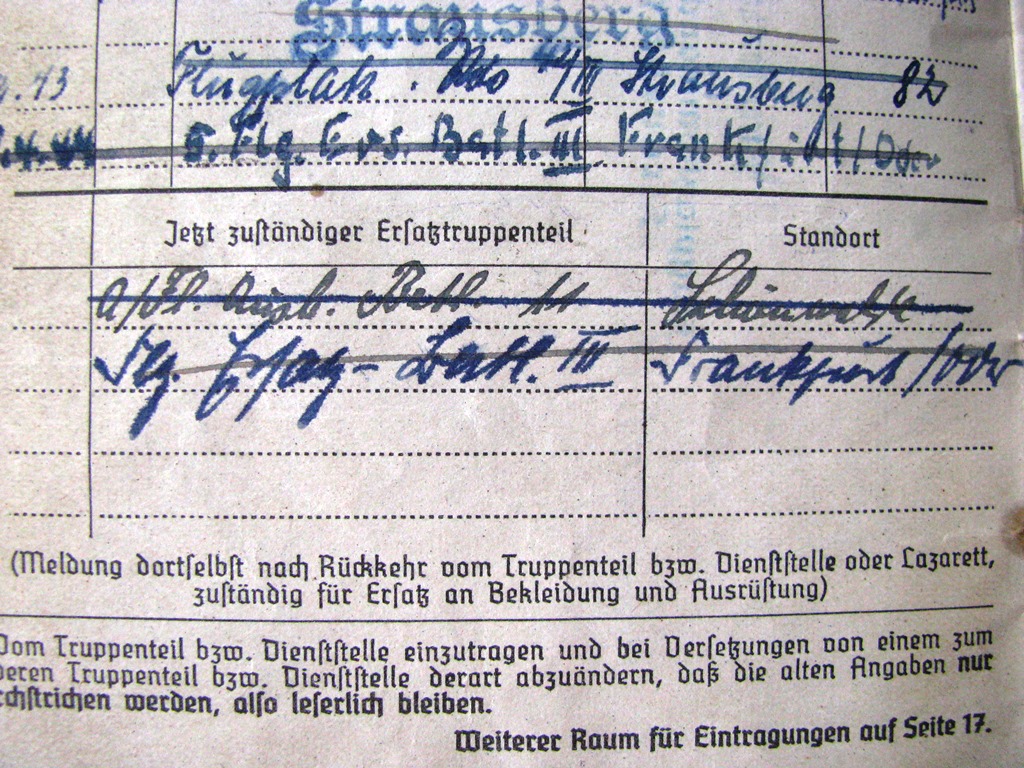 Strausberg
.43 Flugplatz. Kdo 44/III Strausberg 82
.4.44 5. Flg. Ers. Batl. III Frankfurt/Oder
Jetzt zuständiger Ersatztruppenteil Standort
a/Fl. Ausb. Batl. Schönwalde
Flg. Ersatz-Batl. III Frankfurt/Oder
(Meldung dortselbst nach Rückkehr vom Truppenteil bzw. Dienststelle oder Lazarett,
zuständig für Ersatz an Bekleidung und Ausrüstung)
Vom Truppenteil bzw. Dienststelle einzutragen und bei Versetzungen von einem zum
deren Truppenteil bzw. Dienststelle derart abzuändern, daß die alten Angaben nur
rchstrichen werden, also leserlich bleiben.
Weiterer Raum für Eintragungen auf Seite 17.